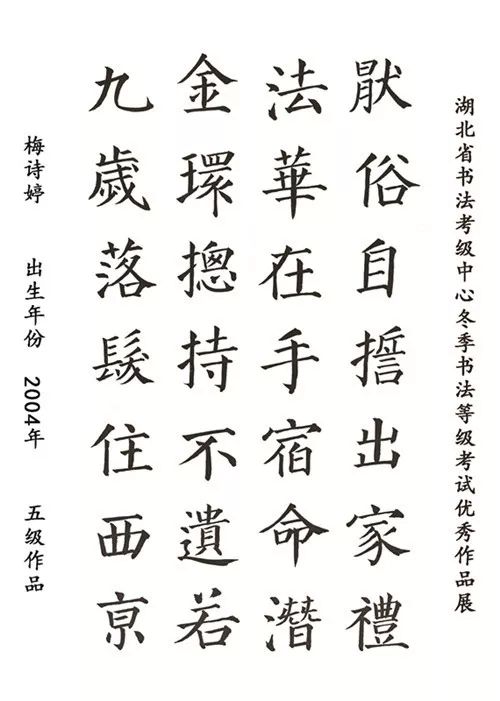 湖北省书法考级中心冬季书法等级考试优秀作品展
猒俗自誓出家禮
法華在手宿命潛
金環摠持不遺若
九歲落髮住西亰
梅诗婷 出生年份 2004年 五级作品